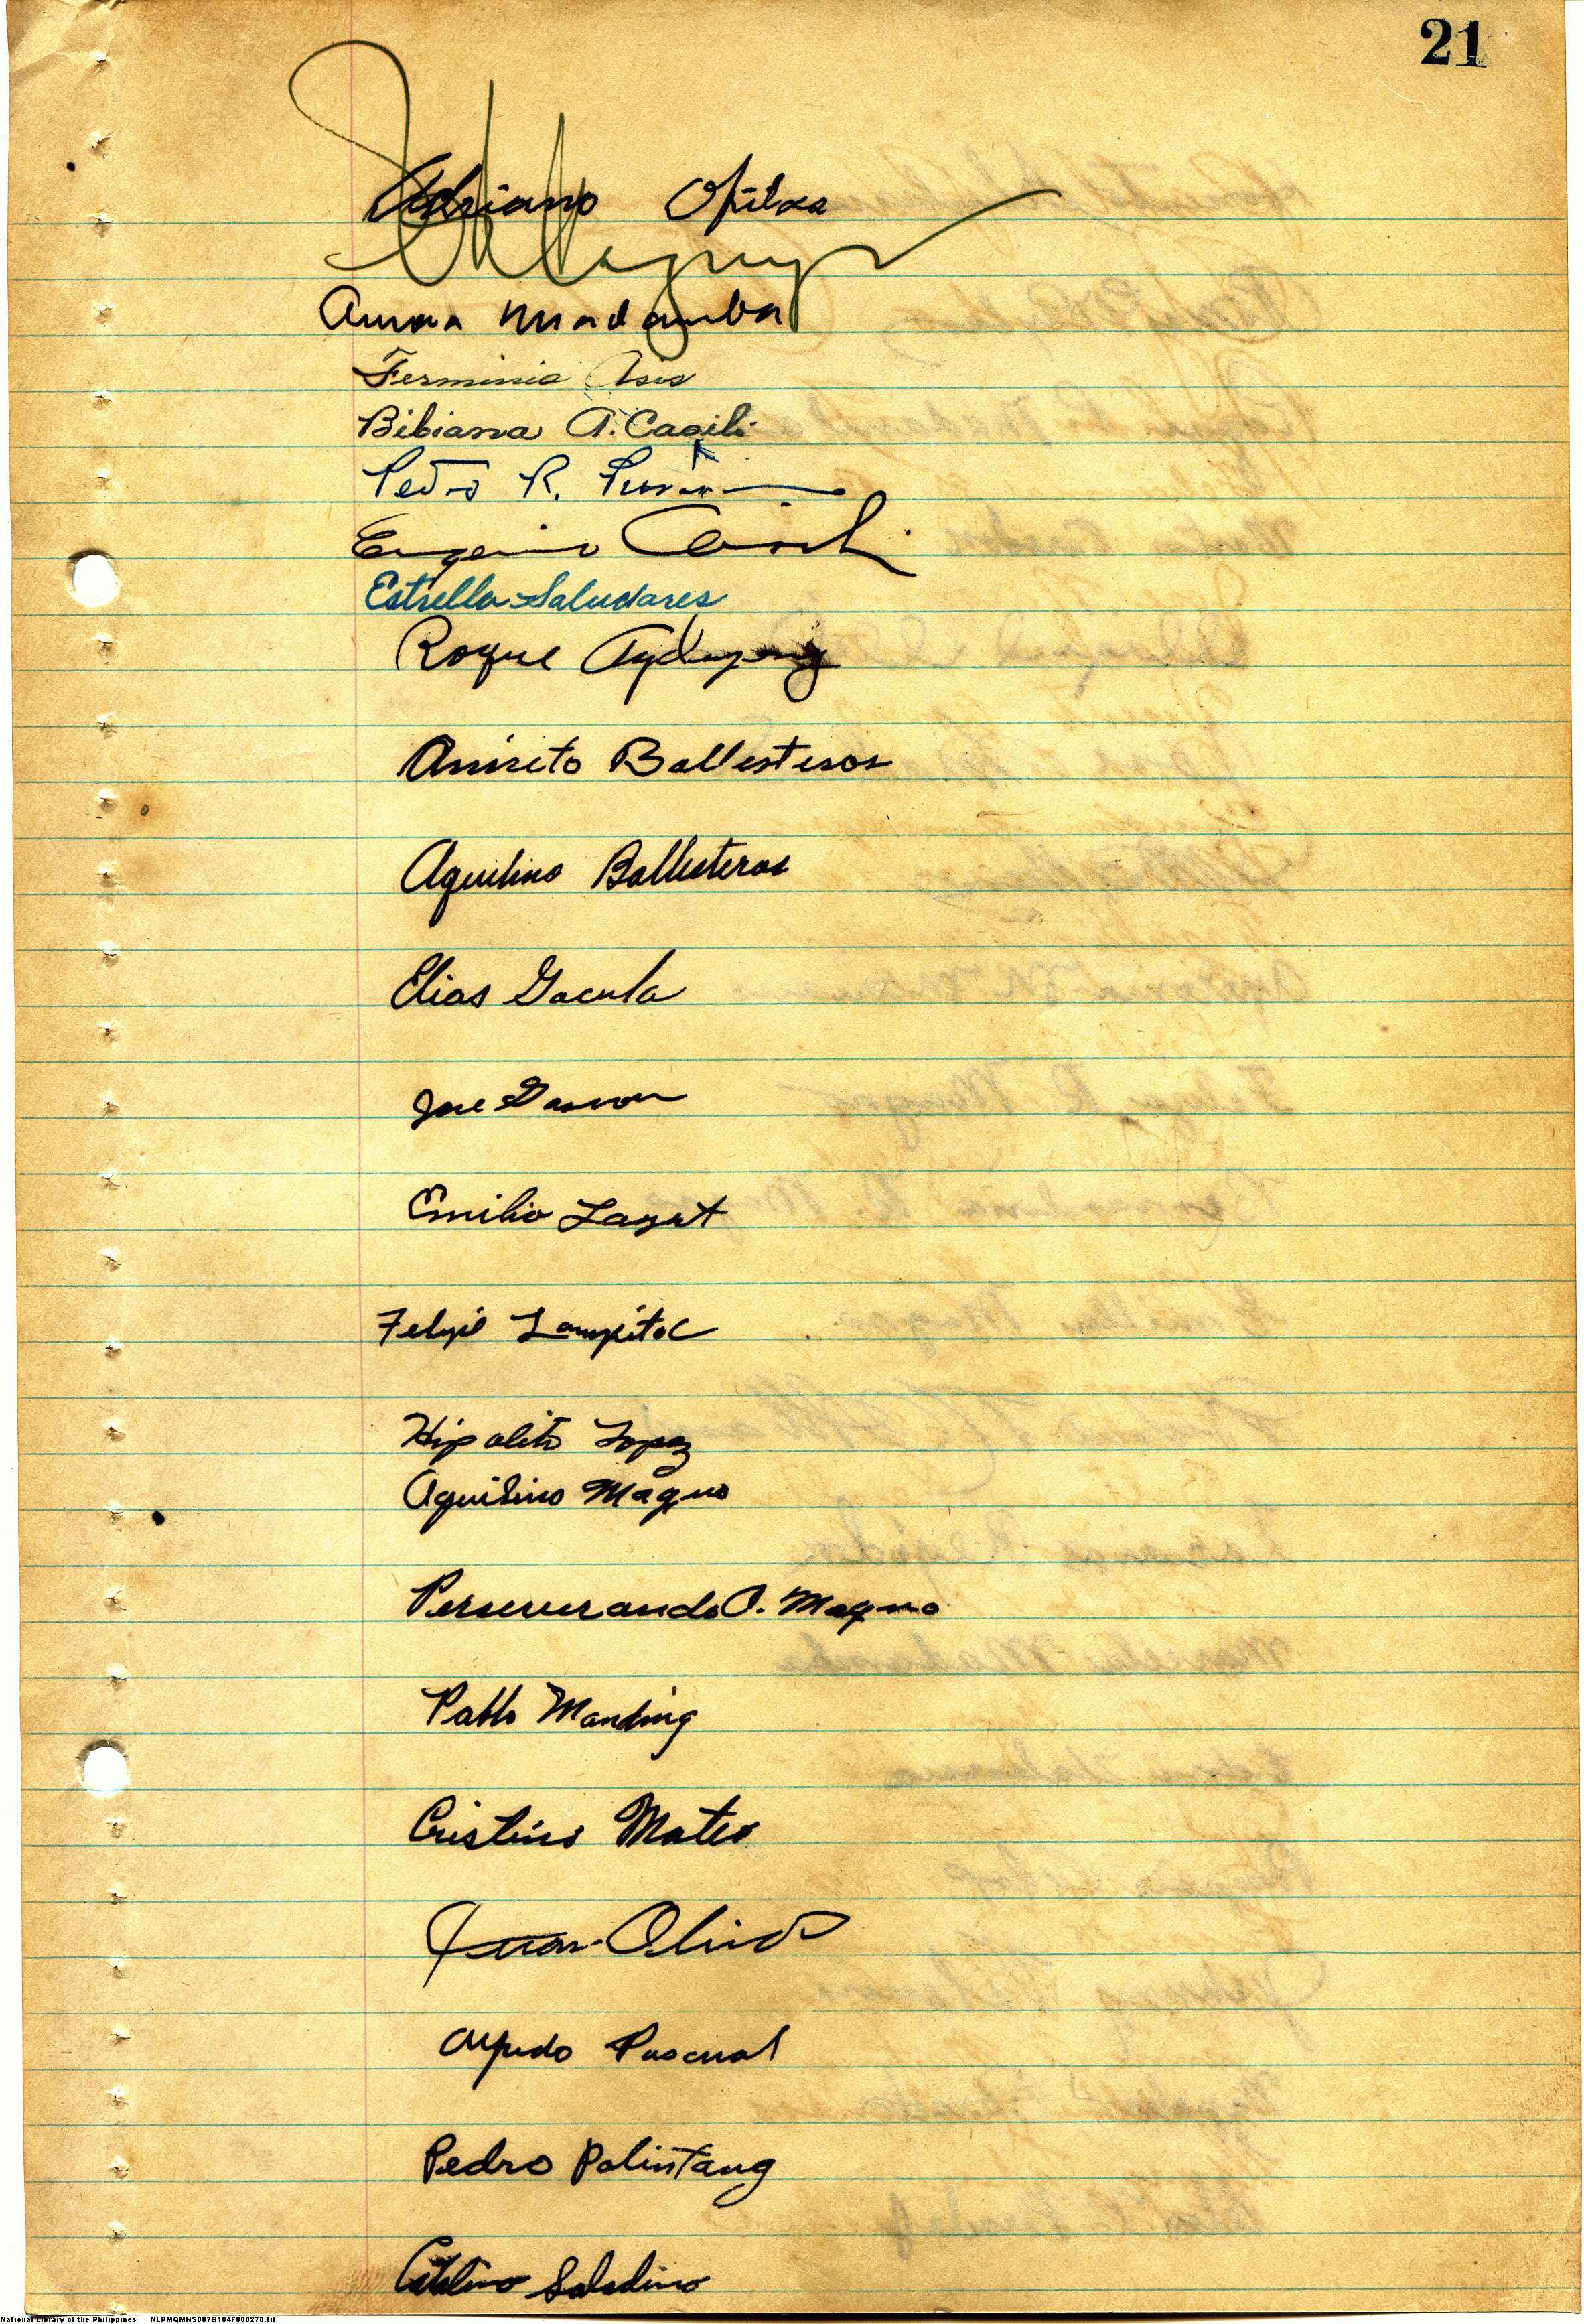 21
Adriano
Aurora Madamba
Ferminia Asis
Bibiana A. Cagili
Pedro R.
Eugenio
Estrella Saludares
Roque
Aniceto Ballesteros
Aquilino Ballesteros
Elias Gacula
Jose Gascon
Emilio Layat
Felipe Lampitoc
Hipolito Lopez
Aquilino Magno
Perseverando O. Magno
Pablo Manding
Cristino Mateo
Juan Olivo
Alfredo Pascual
Pedro Palintang
Catalino Saladino
National Library of the Philippines NLPMQMNS007B104F000270.tif